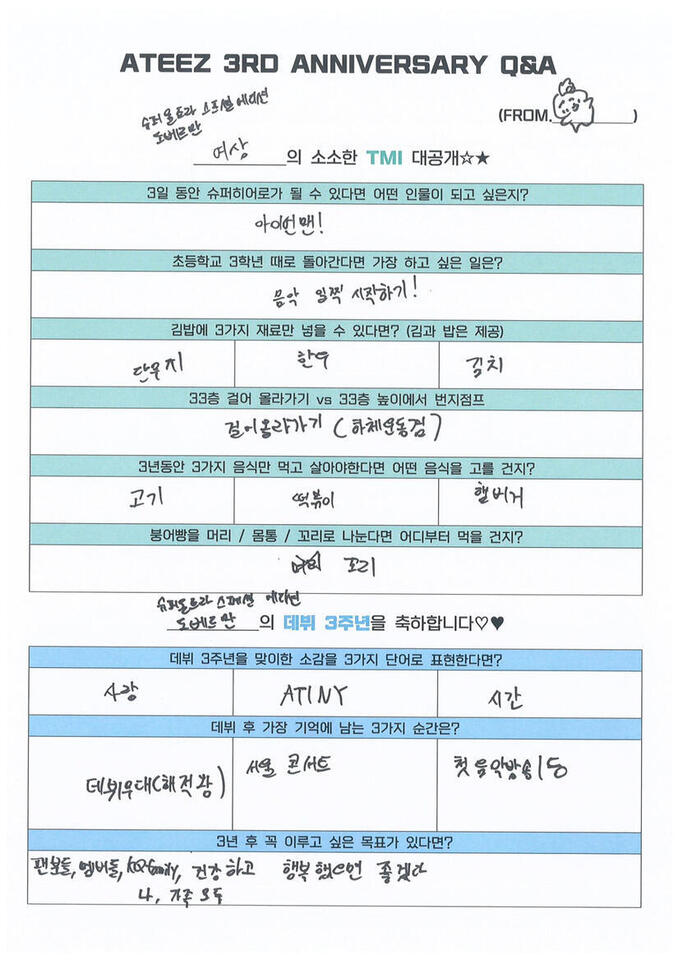 ATEEZ 3RD ANNIVERSARY Q&A
(FROM. )
슈퍼울트라 스프셜 에디션
도베르만
여상 의 소소한 TMI 대공개☆★
3일 동안 슈퍼히어로가 될 수 있다면 어떤 인물이 되고 싶은지?
아이언맨!
초등학교 3학년 때로 돌아간다면 가장 하고 싶은 일은?
음악 일찍 시작하기!
김밥에 3가지 재료만 넣을 수 있다면? (김과 밥은 제공)
단무지 한우 김치
33층 걸어 올라가기 vs 33층 높이에서 번지점프
걸어올라가기 (하체운동겸)
3년동안 3가지 음식만 먹고 살아야한다면 어떤 음식을 고를 건지?
고기 떡볶이 햄버거
붕어빵을 머리 / 몸통 / 꼬리로 나눈다면 어디부터 먹을 건지?
꼬리
슈퍼울트라 스페셜 에디션
도베르만 의 데뷔 3주년을 축하합니다♡♥
데뷔 3주년을 맞이한 소감을 3가지 단어로 표현한다면?
사랑 ATINY 시간
데뷔 후 가장 기억에 남는 3가지 순간은?
데뷔무대(해적왕) 서울 콘서트 첫 음악방송 1등
3년 후 꼭 이루고 싶은 목표가 있다면?
팬분들, 멤버들, KQ family, 건강하고 행복했으면 좋겠다
나, 가족 모두